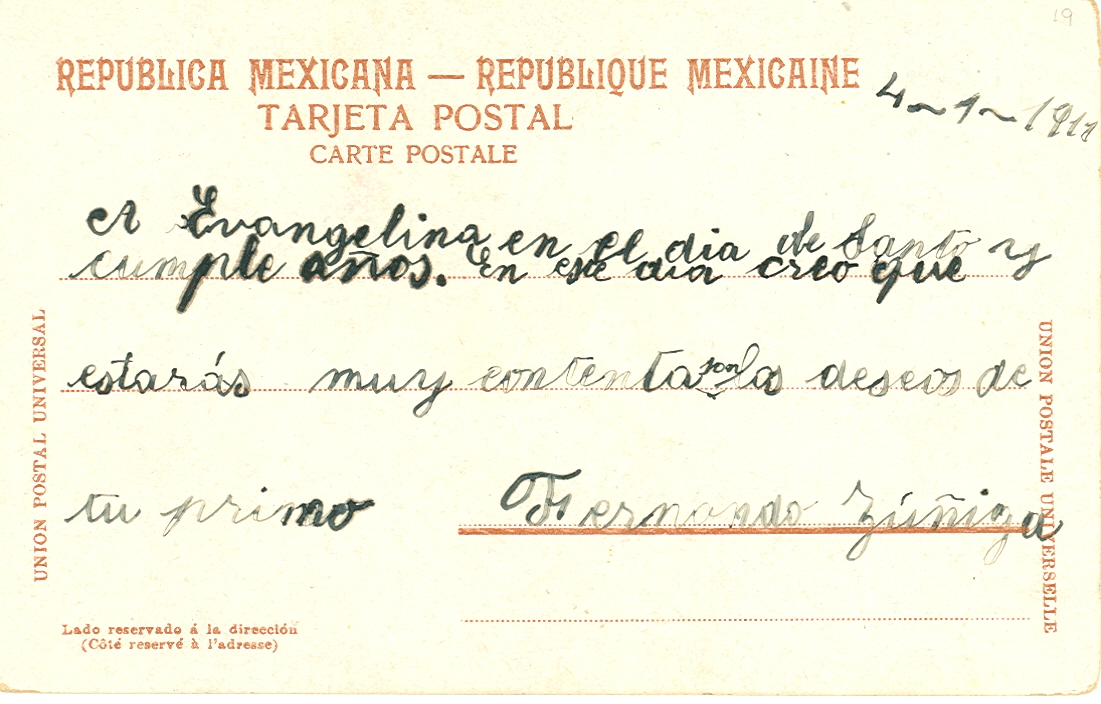 19
REPUBLICA MEXICANA — REPUBLIQUE MEXICAINE
4~1~1911
TARJETA POSTAL
CARTE POSTALE
A Evangelina en el dia de Santo y
cumple años. En ese dia creo que
estarás muy contenta son los deseos de
tu primo Fernando Zúñiga
UNION POSTAL UNIVERSAL
UNION POSTALE UNIVERSELLE
Lado reservado á la dirección
(Côté reservé à l'adresse)